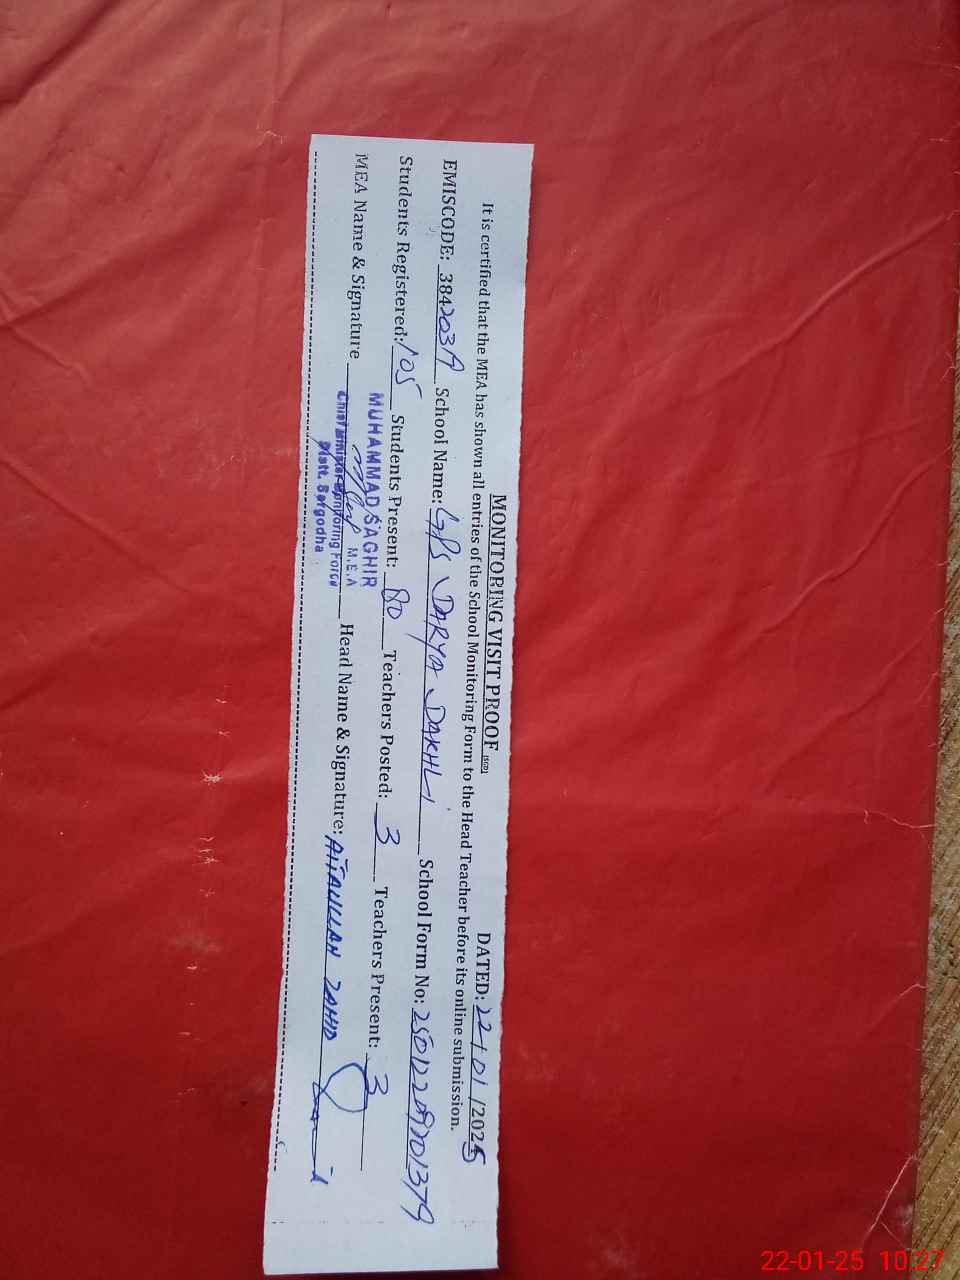 MONITORING VISIT PROOF (SED) DATED: 22/01/2025
It is certified that the MEA has shown all entries of the School Monitoring Form to the Head Teacher before its online submission.
EMISCODE: 38420319 School Name: GPS DARYA DAKHLI School Form No:
Students Registered: 105 Students Present: 80 Teachers Posted: 3 Teachers Present: 3
MUHAMMAD SAGHIR
M.E.A
MEA Name & Signature Head Name & Signature: ZAHID
Chief Minister Monitoring Force
Distt. Sargodha
22-01-25 10:27